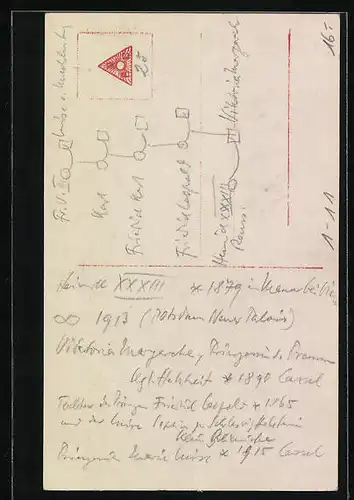 16.-
25
Fr. W. III Luise v. Mecklenburg
Karl
Friedrich Karl
Friedrich Leopold
Heinrich XXXIII Reuss Viktoria Margarete
1-11
Heinrich XXXIII * 1879 in
∞ 1913 (Potsdam Neues Palais)
Viktoria Margarethe, Prinzessin v. Preussen
Kgl. Hoheit * 1890 Cassel
Tochter des Prinzen Friedrich Leopold * 1865
und der Luise Sophie zu Schleswig-Holstein
Prinzessin Marie Luise * 1915 Cassel